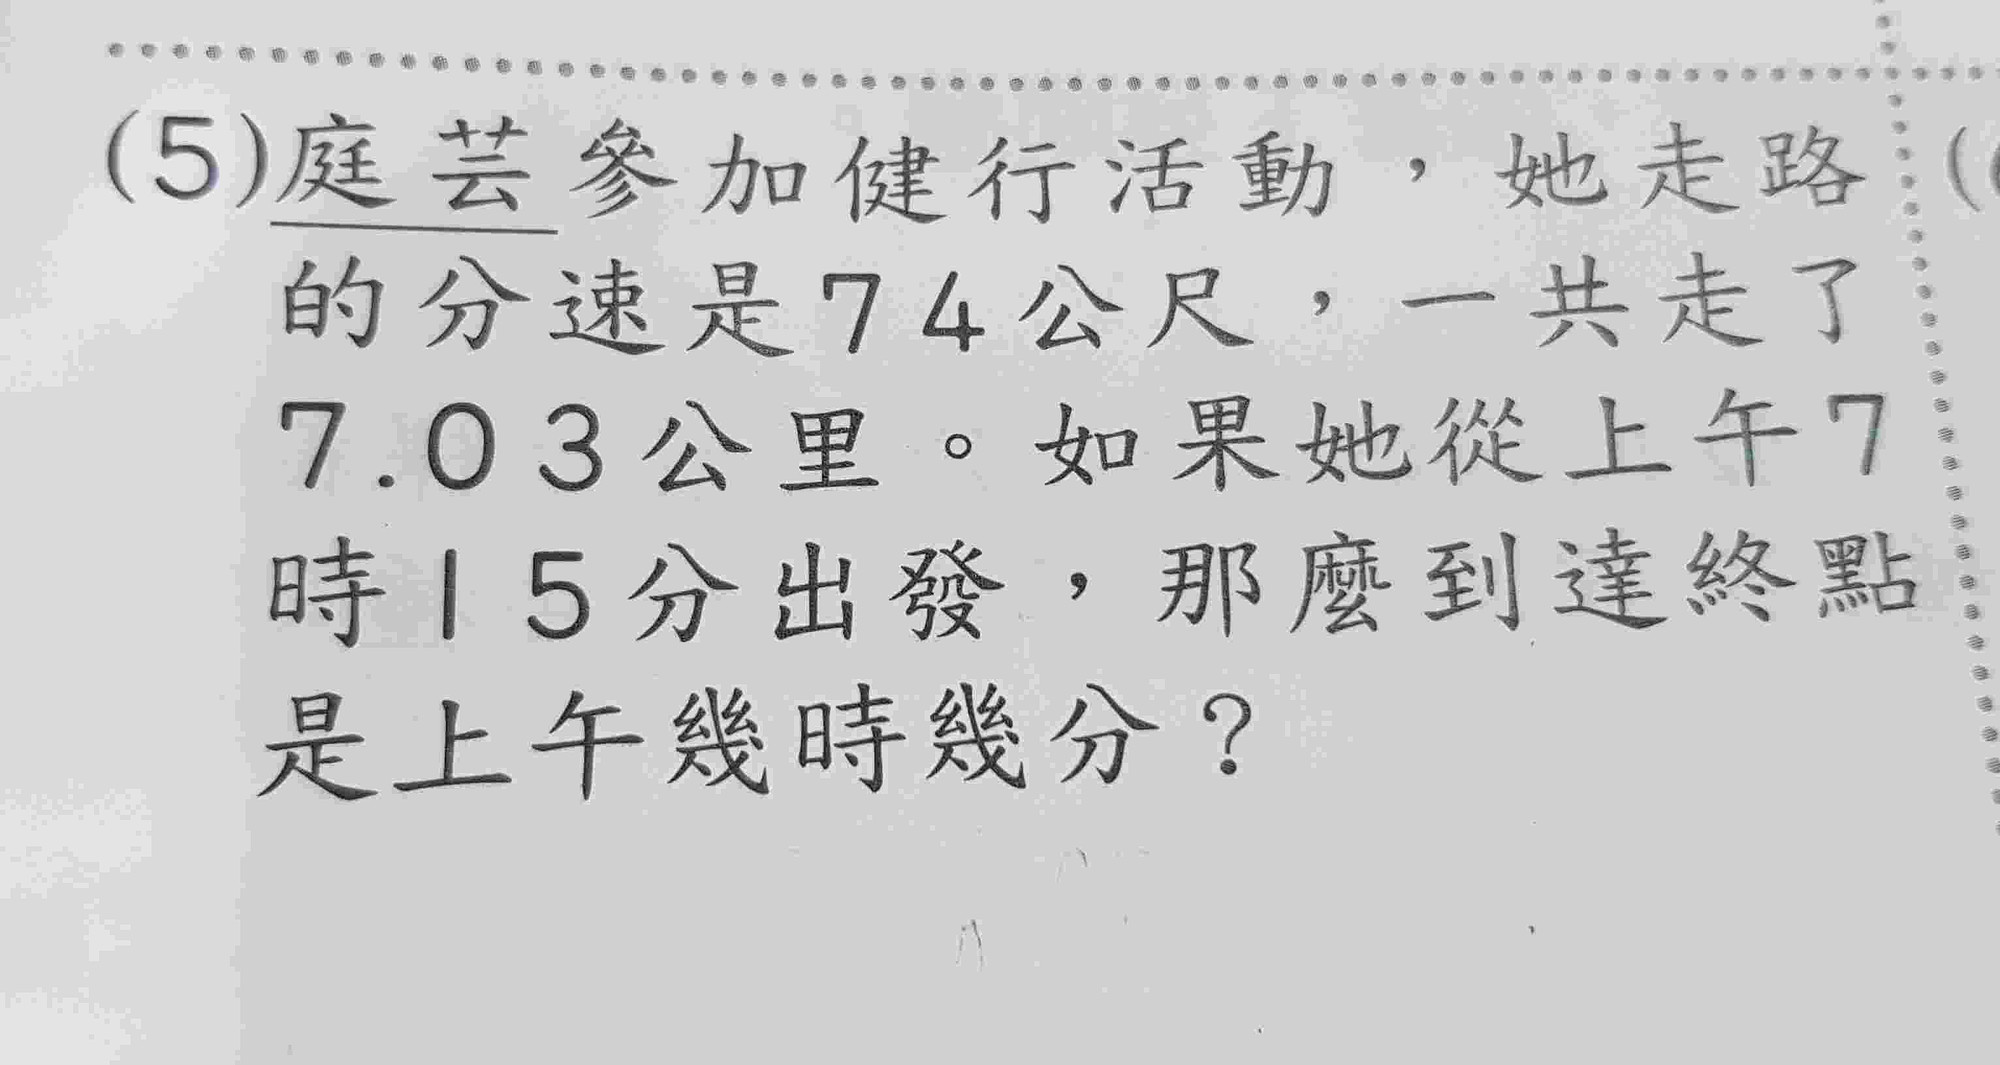 (5)庭芸參加健行活動，她走路
的分速是74公尺，一共走了
7.03公里。如果她從上午7
時15分出發，那麼到達終點
是上午幾時幾分？